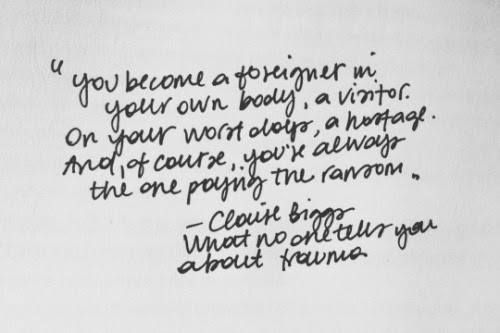 "you become a foreigner in
your own body, a visitor.
On your worst days, a hostage.
And, of course, you're always
the one paying the ransom"
— Claire Biggs
What no one tells you
about trauma